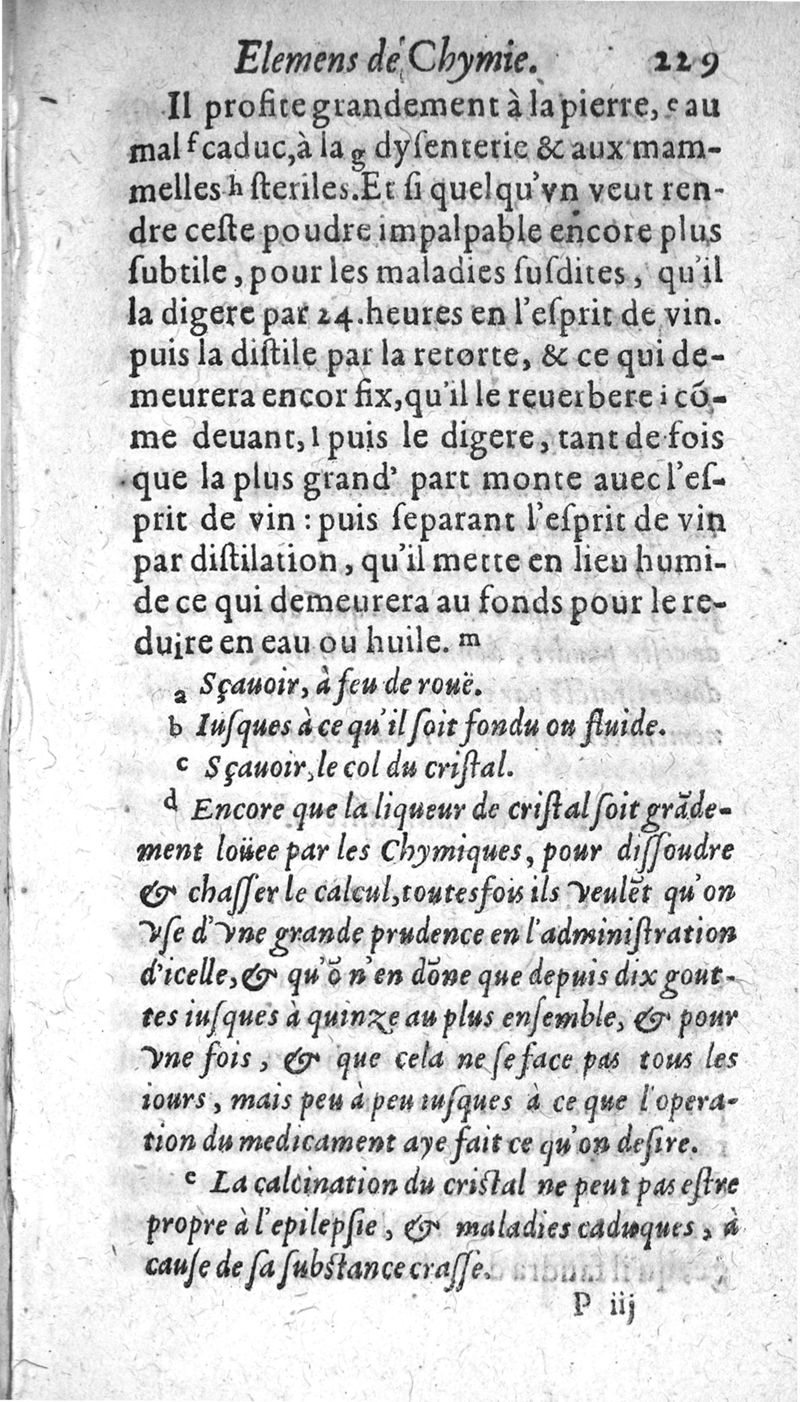 Elemens de Chymie. 229
Il profite grandement à la pierre, e au
mal f caduc, à la g dyſenterie & aux mam-
melles h ſteriles. Et ſi quelqu'vn veut ren-
dre ceſte poudre impalpable encore plus
ſubtile, pour les maladies ſuſdites, qu'il
la digere par 24. heures en l'eſprit de vin.
puis la diſtile par la retorte, & ce qui de-
meurera encor fix, qu'il le reuerbere i cõ-
me deuant, l puis le digere, tant de fois
que la plus grand' part monte auec l'eſ-
prit de vin : puis ſeparant l'eſprit de vin
par diſtilation, qu'il mette en lieu humi-
de ce qui demeurera au fonds pour le re-
duire en eau ou huile. m
a Sçauoir, à feu de rouë.
b Iuſques à ce qu'il ſoit fondu ou fluide.
c Sçauoir, le col du criſtal.
d Encore que la liqueur de criſtal ſoit grãde-
ment loüee par les Chymiques, pour diſſoudre
& chaſſer le calcul, toutesfois ils veulẽt qu'on
vſe d'vne grande prudence en l'adminiſtration
d'icelle, & qu'õ n'en dõne que depuis dix gout-
tes iuſques à quinze au plus enſemble, & pour
vne fois, & que cela ne ſe face pas tous les
iours, mais peu à peu iuſques à ce que l'opera-
tion du medicament aye fait ce qu'on deſire.
e La calcination du criſtal ne peut pas eſtre
propre à l'epilepſie, & maladies caduques, à
cauſe de ſa ſubſtance craſſe.
P iij